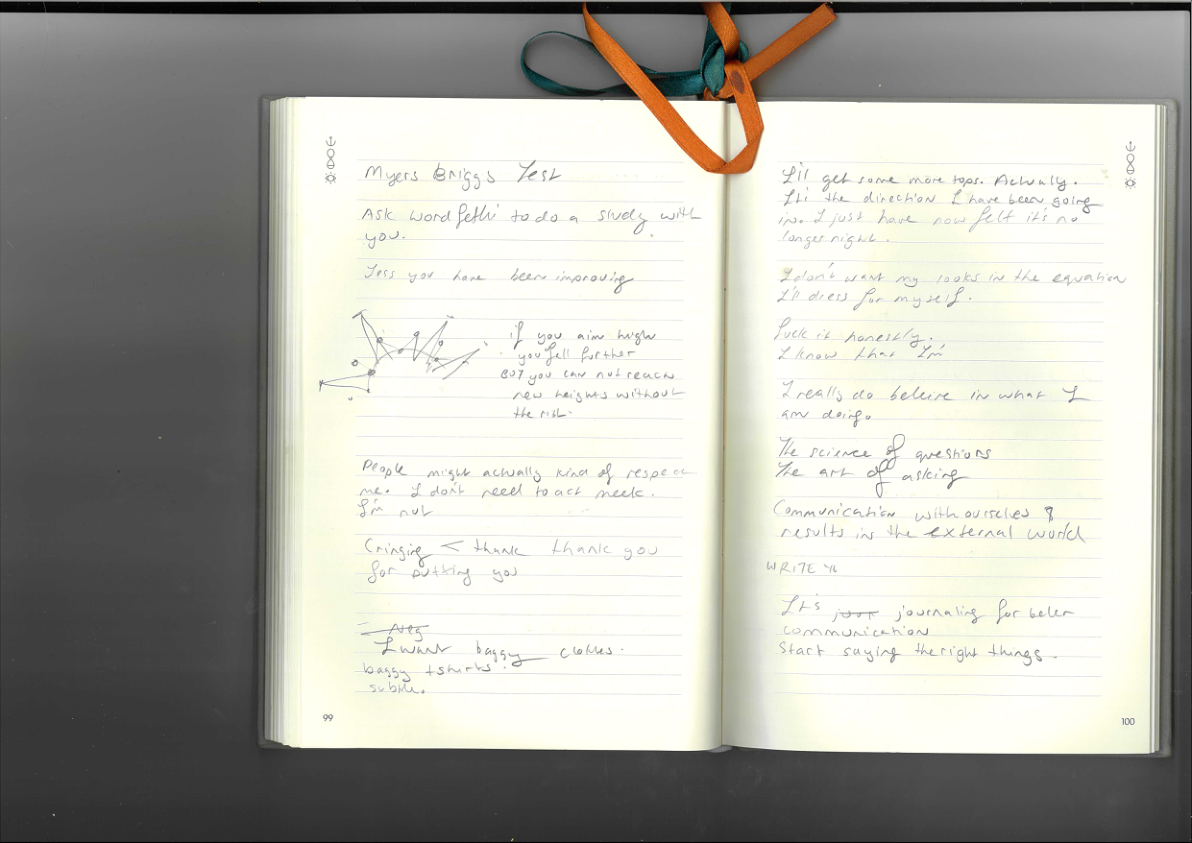 Myers Briggs Test
Ask word fethi to do a study with
you.
Jess you have been improving
if you aim high
you fall further
BUT you can not reach
new heights without
the risk.
People might actually kind of respect
me. I don't need to act meek.
I'm not
Cringing < thank thank you
for putting you
Neg
I want baggy clothes.
baggy tshirts.
subtle.
99
I'll get some more tops. Actually.
It's the direction I have been going
in. I just have now felt it's no
longer right.
I don't want my looks in the equation
I'll dress for myself.
fuck it honestly.
I know that I'm
I really do beleive in what I
am doing.
The science of questions
The art of asking
Communication with ourselves &
results in the external world
WRITE
It's just journaling for beter
communication
Start saying the right things.
100